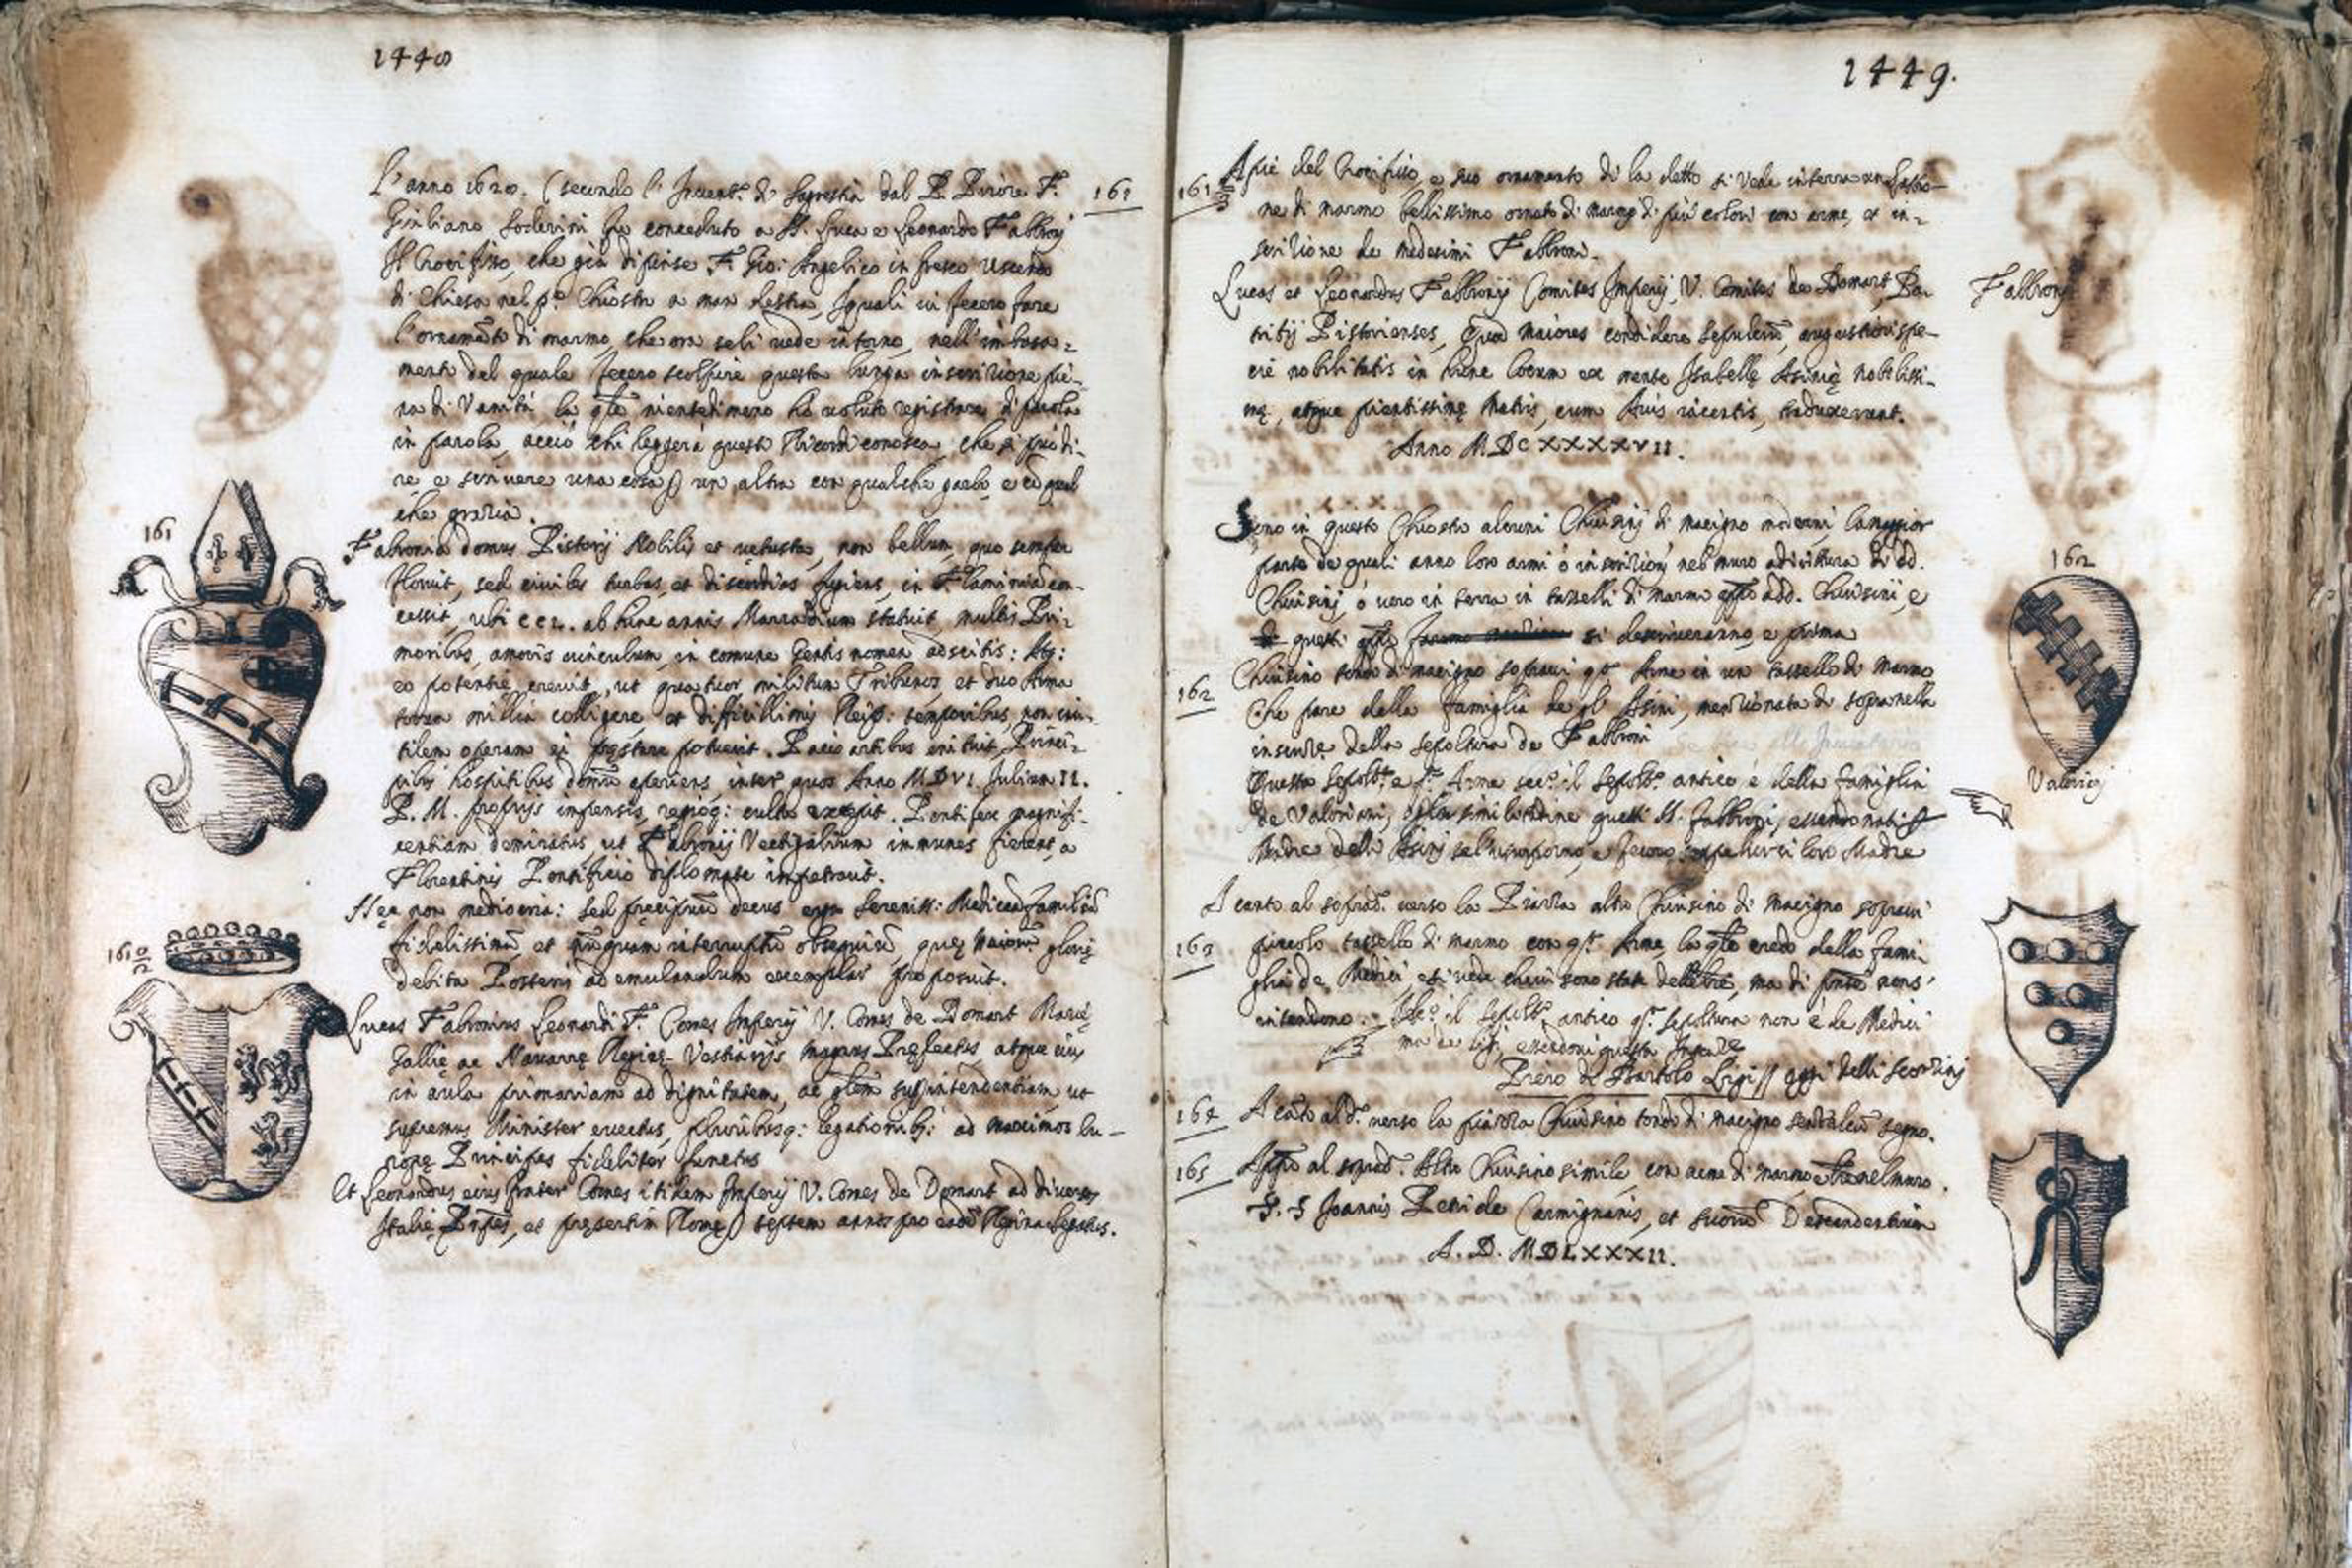 1448
L'anno 1628. (secondo l'Invent.º di Sagrestia dal P. Priore F.
Giuliano Soderini fu conceduto a SS. Luca e Leonardo Fabbronj
Il Crocifisso, che già dipinse F. Gio: Angelico in fresco uscendo
di Chiesa nel p.º Chiostro a man destra, I quali vi fecero fare
l'ornamẽto di marmo, che ora seli vede intorno, nell'imbasa=
mento del quale fecero scolpire questa lunga inscrizione pie=
na di Vanità la qle nientedimeno ho voluto registrare di parola
in parola, acciò chi leggerà questi Ricordi conosca, che si può di=
re e scrivere una cosa un altra con qualche garbo, e cõ qual
che grazia.
161
161
Fabronia domus Pistorij Nobilis et vetusta, non bellum, quo semper
floruit, sed civiles turbas, et discordias fugiens, in Flaminiã con=
cessit, ubi ccc. ab hinc annis Marradium statuit, multis Pri=
moribus, amoris vinculum, in comune Gentis nomen adscitis: Atq:
eo potentie crevit, ut quatuor militum Tribunos, et duo Arma
torum millia colligere, et difficillimis Reip: temporibus, non inu=
tilem operam ei pręstare potuerit. Pacis artibus enituit, Princi=
pibus hospitibus domũ aperiens, inter quos Anno MDVI. Julium II.
P. M. proprijs impensis, regioq: cultu excepit. Pontifex magnifi=
centiam demiratus, ut Fabronij Vectigalium immunes fierent, a
Florentinis Pontificio diplomate impetravit.
Hęc non mediocria: sed pręcipuũ decus erga Sereniss: Mediceã familiã
fidelissimũ, et nũquam interruptũ obsequiũ, quę maiorũ glorię
debita Posteris ad emulandum exemplar proposuit.
161 2/2
Lucas Fabronius Leonardi F. Comes Imperij V. Comes de Domart Marię
Gallię ac Navarrę Reginę Vestiarijs magnus Pręfectus, atque eius
in aula primariam ad dignitatem, ac glem supintendentiam ut
supremus Minister evectus, pluribusq: legationibq: ad maximos Eu=
ropę Principes fideliter functus
Et Leonardus eius frater Comes itidem Imperij V. Comes de Domart ad diversos
Italię Pnpes, et pręsertim Romę septem annos pro eadẽ Regina Legatus.
1449.
161 2/3
A piè del Crocifisso, e suo ornamento di la detto si vede in terra un Lastro=
ne di marmo bellissimo ornato di marmi di più colori con arme, et in=
scrizione de medesimi Fabbroni.
Lucas et Leonardus Fabbronij Comites Imperij, V. Comites de Domart Pa=
tritij Pistorienses, Quod maiores condidere sepulcrũ, augustiori spe=
cie nobilitatis in hunc locum ex mente Isabellę Asinię nobilissi=
mę, atque pientissimę Matris, cum Avis iacentis, traduxerunt.
Anno MDCXXXXVII.
Fabbronj
Sono in questo Chiostro alcuni Chiusinj di macigno moderni, la maggior
parte de quali anno loro armi ò inscrizionj nel muro addirittura di dd.
Chiusinj, ò vero in terra in tasselli di marmo app.º a dd. Chiusini, e
questi si descriveranno, e prima
162
Chiusino tondo di macigno sopravi q.ta Arme in un tassello di marmo
che pare della famiglia de gl'Asini, menzionata di sopra nella
inscrize della sepoltura de Fabbroni
Questa Sepolt.ª e p.ª Arme sec.º il Sepolt.º antico è della famiglia
de Valorianj, della similitudine questi SS. Fabbroni, essendo nati
Madre delli Asinj se l'usurporno, e fecero seppellirvi loro Madre
162
Valorianj
163
A canto al soprad.º verso la Piazza altro Chiusino di macigno sopravi
piccolo tassello di marmo con q.ta Arme, la qle credo della fami=
glia de Medici, e si vede chevi sono state dellettre, ma di pnte non s'
intendono. Sec.º il Sepolt.º antico q.ta sepoltura non è de Medici
ma de Ligi, essendovi questa Inscrize
Piero di Bartolo Ligi // oggi delli Scorzinj
164 A cãto al d.º verso la piazza Chiusino tondo di macigno senz'alcũ segno.
165 App.º al soprad.º Altro Chiusino simile, con arme di marmo e lre nel muro.
S. Joannis Petri de Carmignanis, et suorũ Descendentium
A. D. MDLXXXII.